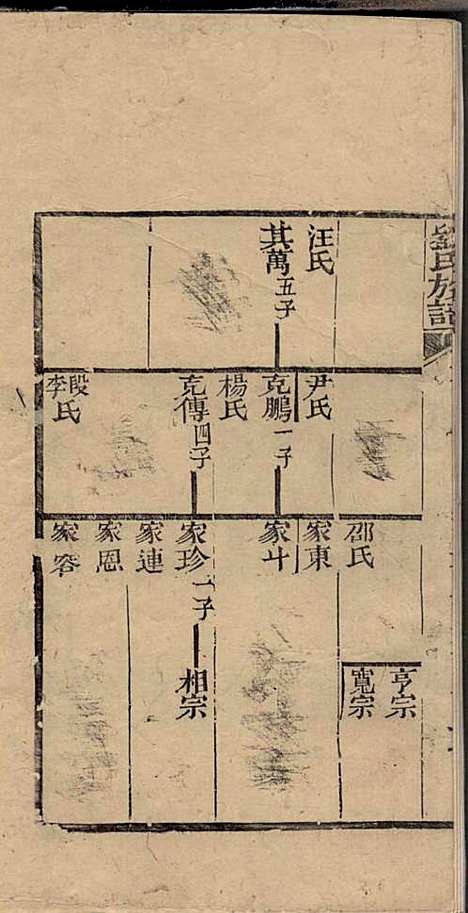 劉氏族譜
汪氏
其萬五子
尹氏
克鵬一子
楊氏
克傳四子
段氏
李氏
邵氏
家東
家斗
家珍一子
家連
家恩
家容
亨宗
寬宗
相宗